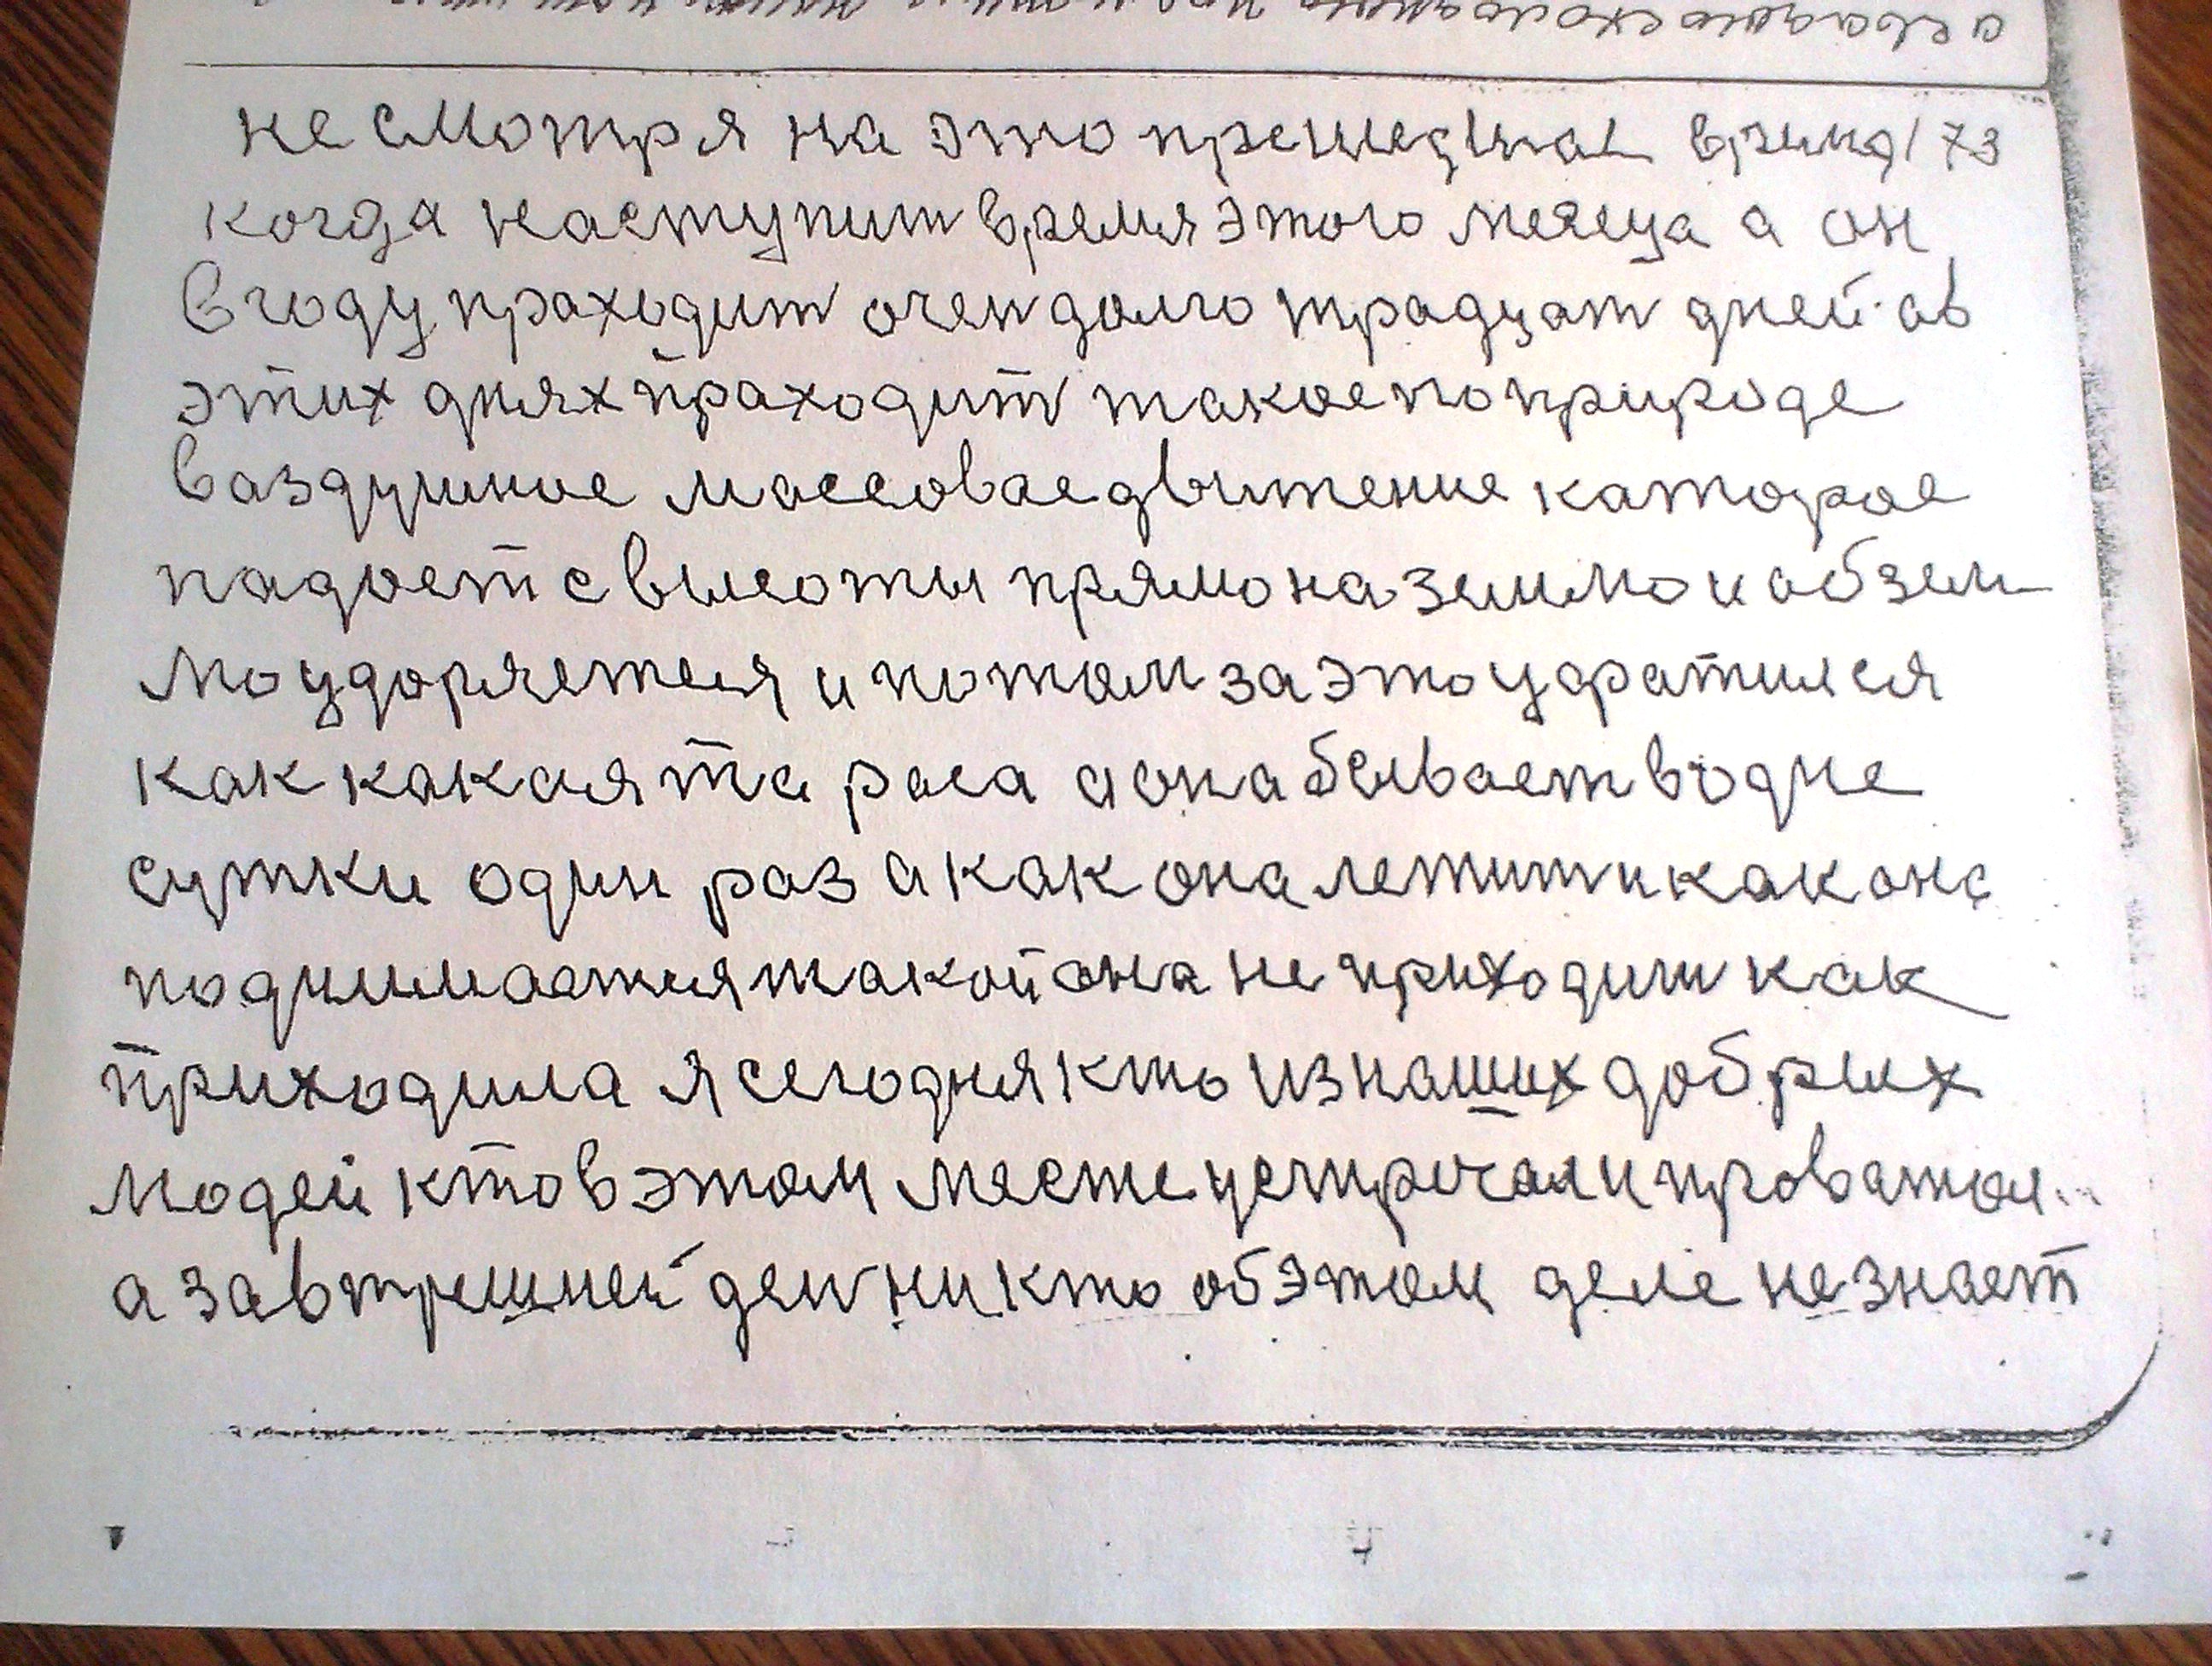 не смотря на это время 73
когда наступит время этого месеца а он
в году праходит очен долго традцат дней ав
этих днях праходит такое по природе
ваздушное массовае двитение каторое
падает с высоты прямо на землю и об зем
лю ударяетея и потом за это
как какая та роса а она бывает в одне
сутки один раз а как она летит и как она
поднимается такой она не приходит как
приходила я сегодня кто из наших добрых
людей кто в этом месте устречал и
а завтрешней ден ни кто об этом деле не знает